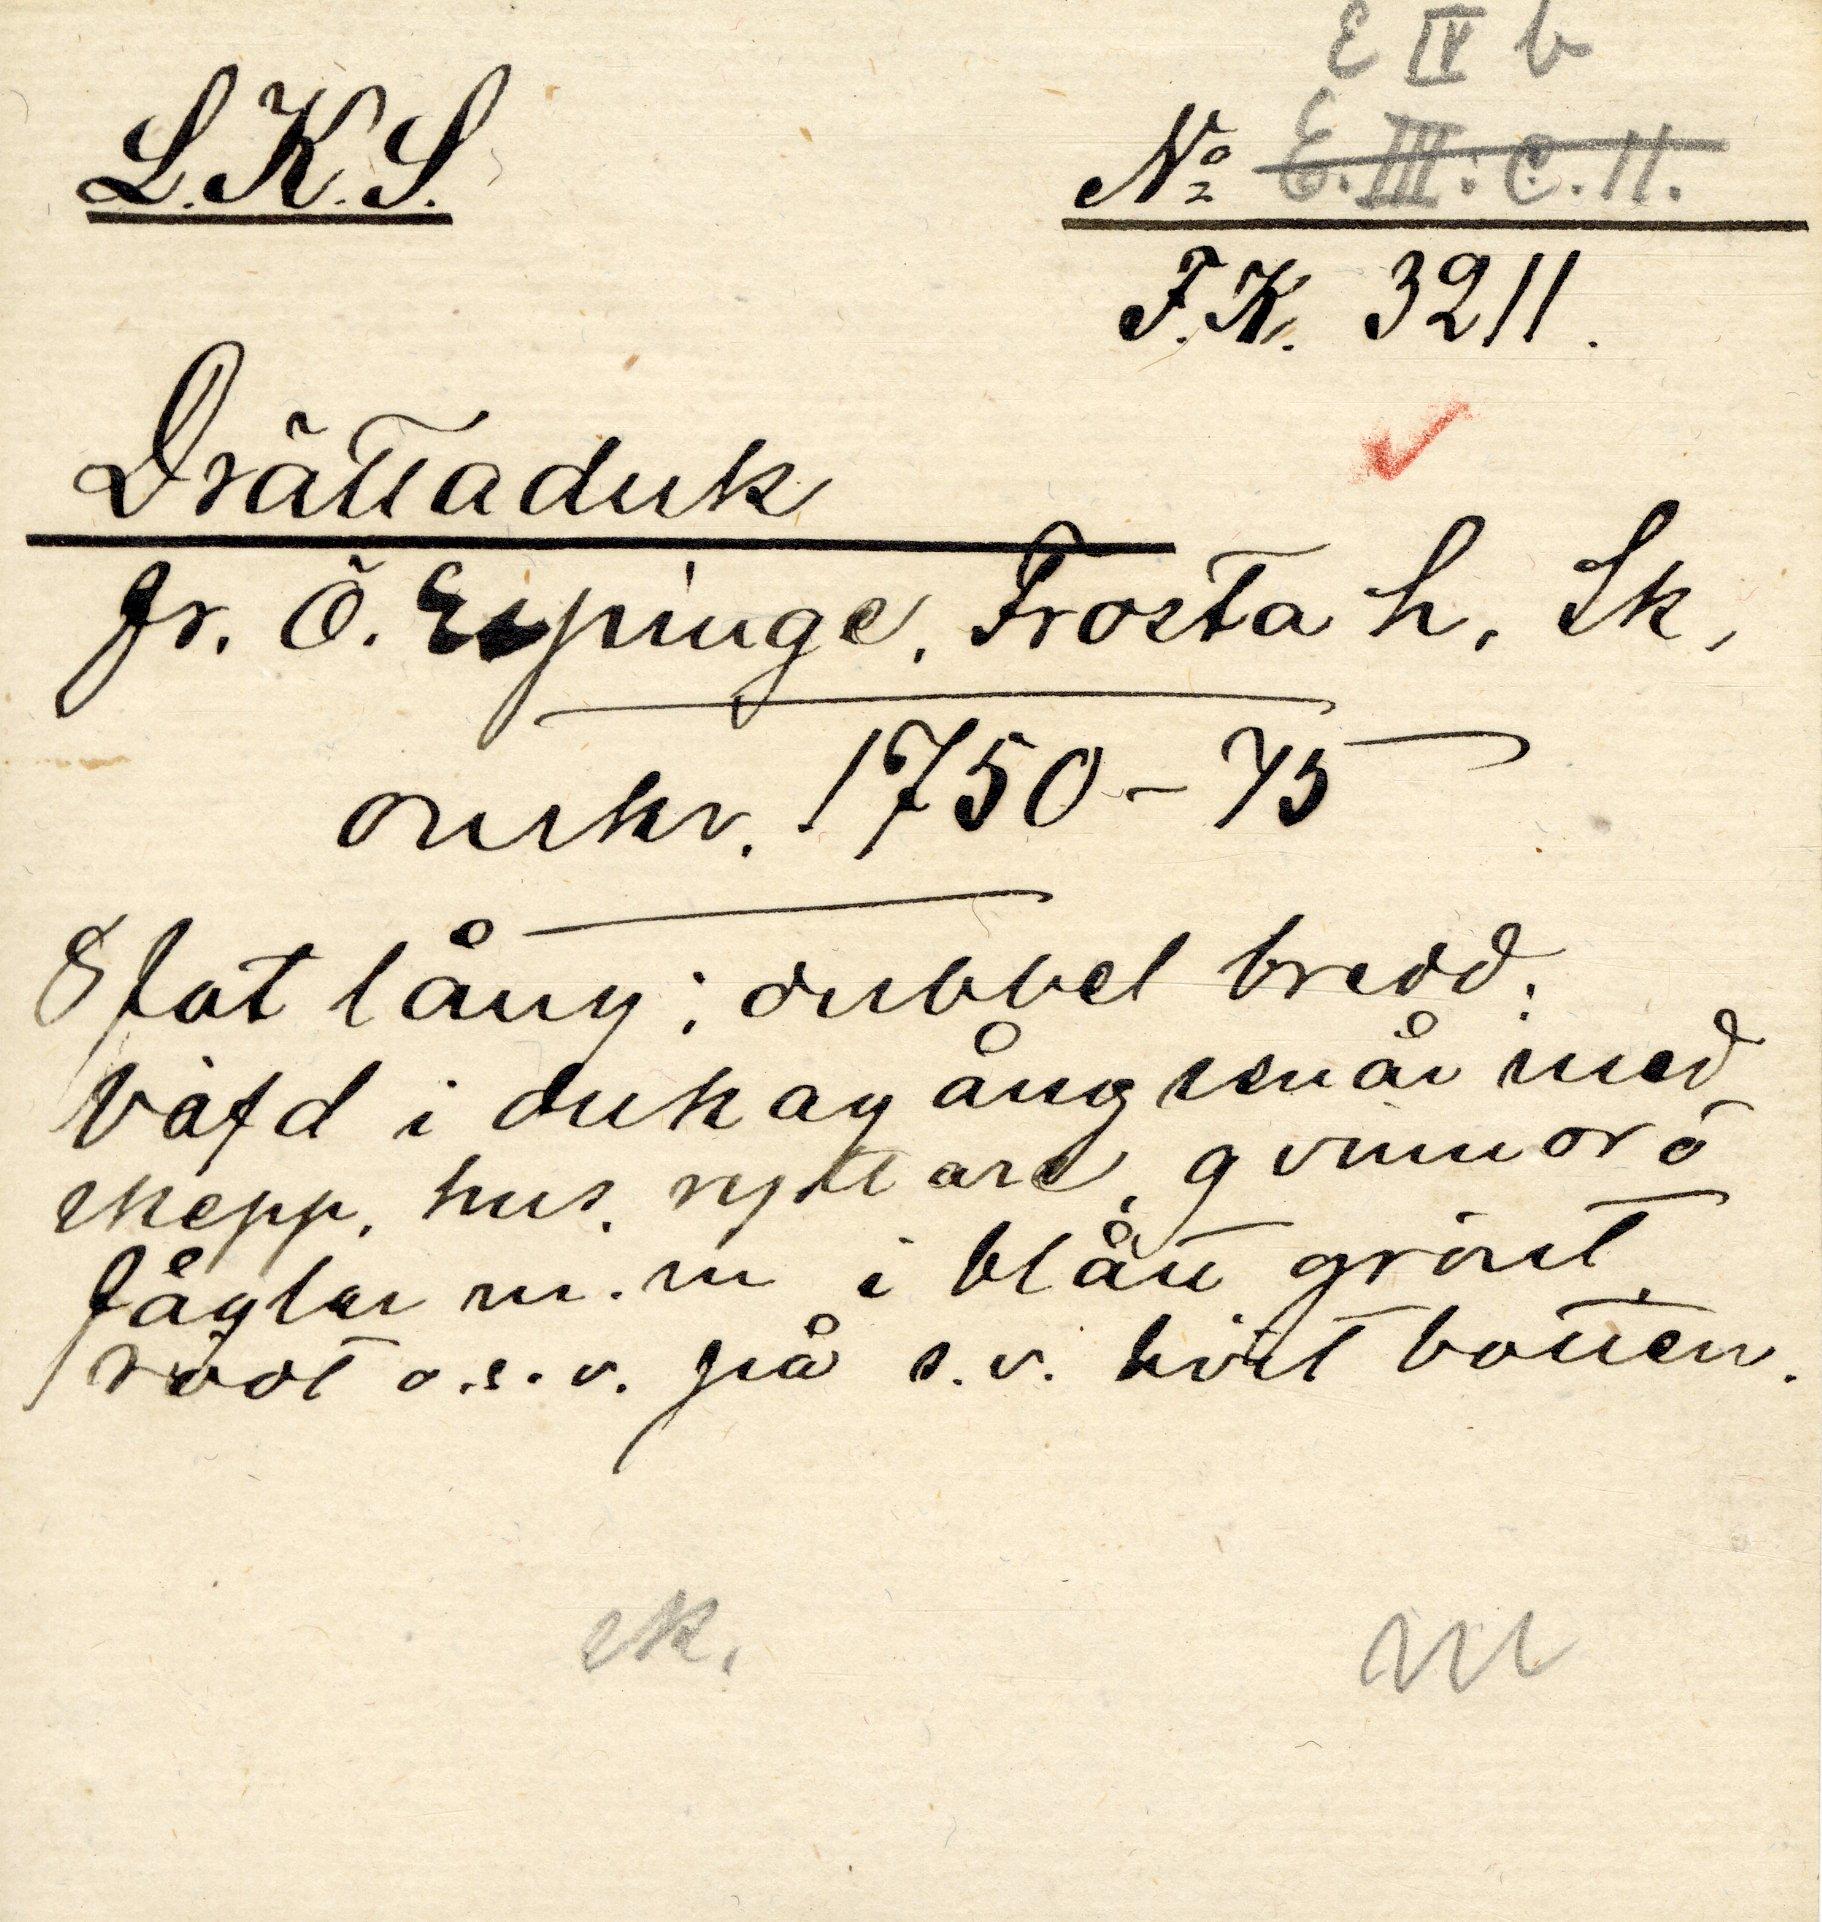 E IV b
L.K.S. No E.III:C.11.
F.K. 3211.
Drättaduk
fr. Ö. Espinge, Frosta h, Sk,
omkr. 1750–75
8 fot lång; dubbel bredd.
Väfd i dukagång med
skepp, hus, ryttare, qvinnor o
fåglar m.m i blått grönt,
rödt o.s.v. på s.v. hvit botten.
sk. m